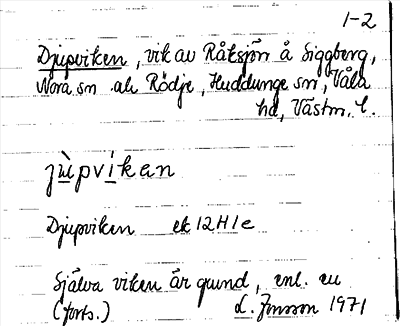 1-2
Djupviken, vik av Råksjön å Siggberg,
Nora sn ak Rödje, Huddunge sn, Våla
hd, Västm. l.
jùpvíkan
Djupviken ek 12H1e
Själva viken är grund, enl. en
(forts.) L. Jonsson 1971